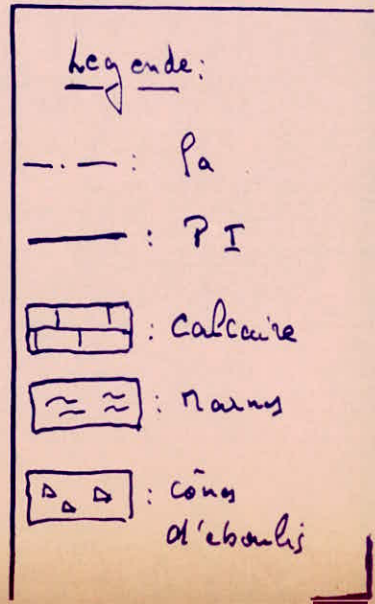 Legende:
: Pa
: PI
: Calcaire
: Marnes
: cônes
d'eboulis